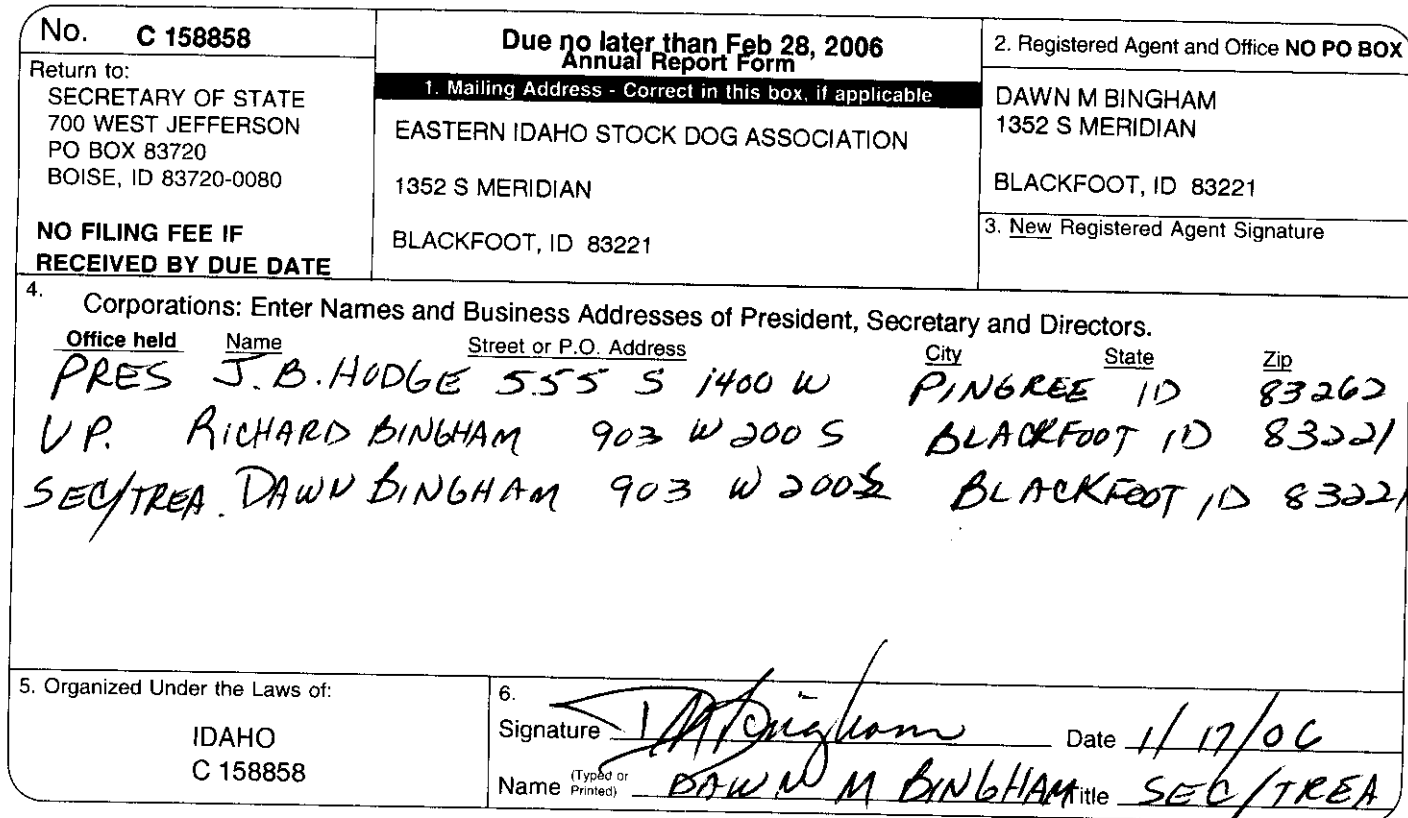 No. C 158858
Return to:
SECRETARY OF STATE
700 WEST JEFFERSON
PO BOX 83720
BOISE, ID 83720-0080
NO FILING FEE IF
RECEIVED BY DUE DATE
Due no later than Feb 28, 2006
Annual Report Form
1. Mailing Address - Correct in this box, if applicable
EASTERN IDAHO STOCK DOG ASSOCIATION
1352 S MERIDIAN
BLACKFOOT, ID 83221
2. Registered Agent and Office NO PO BOX
DAWN M BINGHAM
1352 S MERIDIAN
BLACKFOOT, ID 83221
3. New Registered Agent Signature
4. Corporations: Enter Names and Business Addresses of President, Secretary and Directors.
Office held Name Street or P.O. Address City State Zip
PRES J.B. HODGE 555 S 1400 W PINGREE ID 83262
VP. RICHARD BINGHAM 903 W 200 S BLACKFOOT ID 83221
SEC/TREA. DAWN BINGHAM 903 W 200 S BLACKFOOT ID 83221
5. Organized Under the Laws of:
IDAHO
C 158858
6.
Signature DM Bingham Date 1/17/06
Name (Typed or Printed) DAWN M BINGHAM Title SEC/TREA